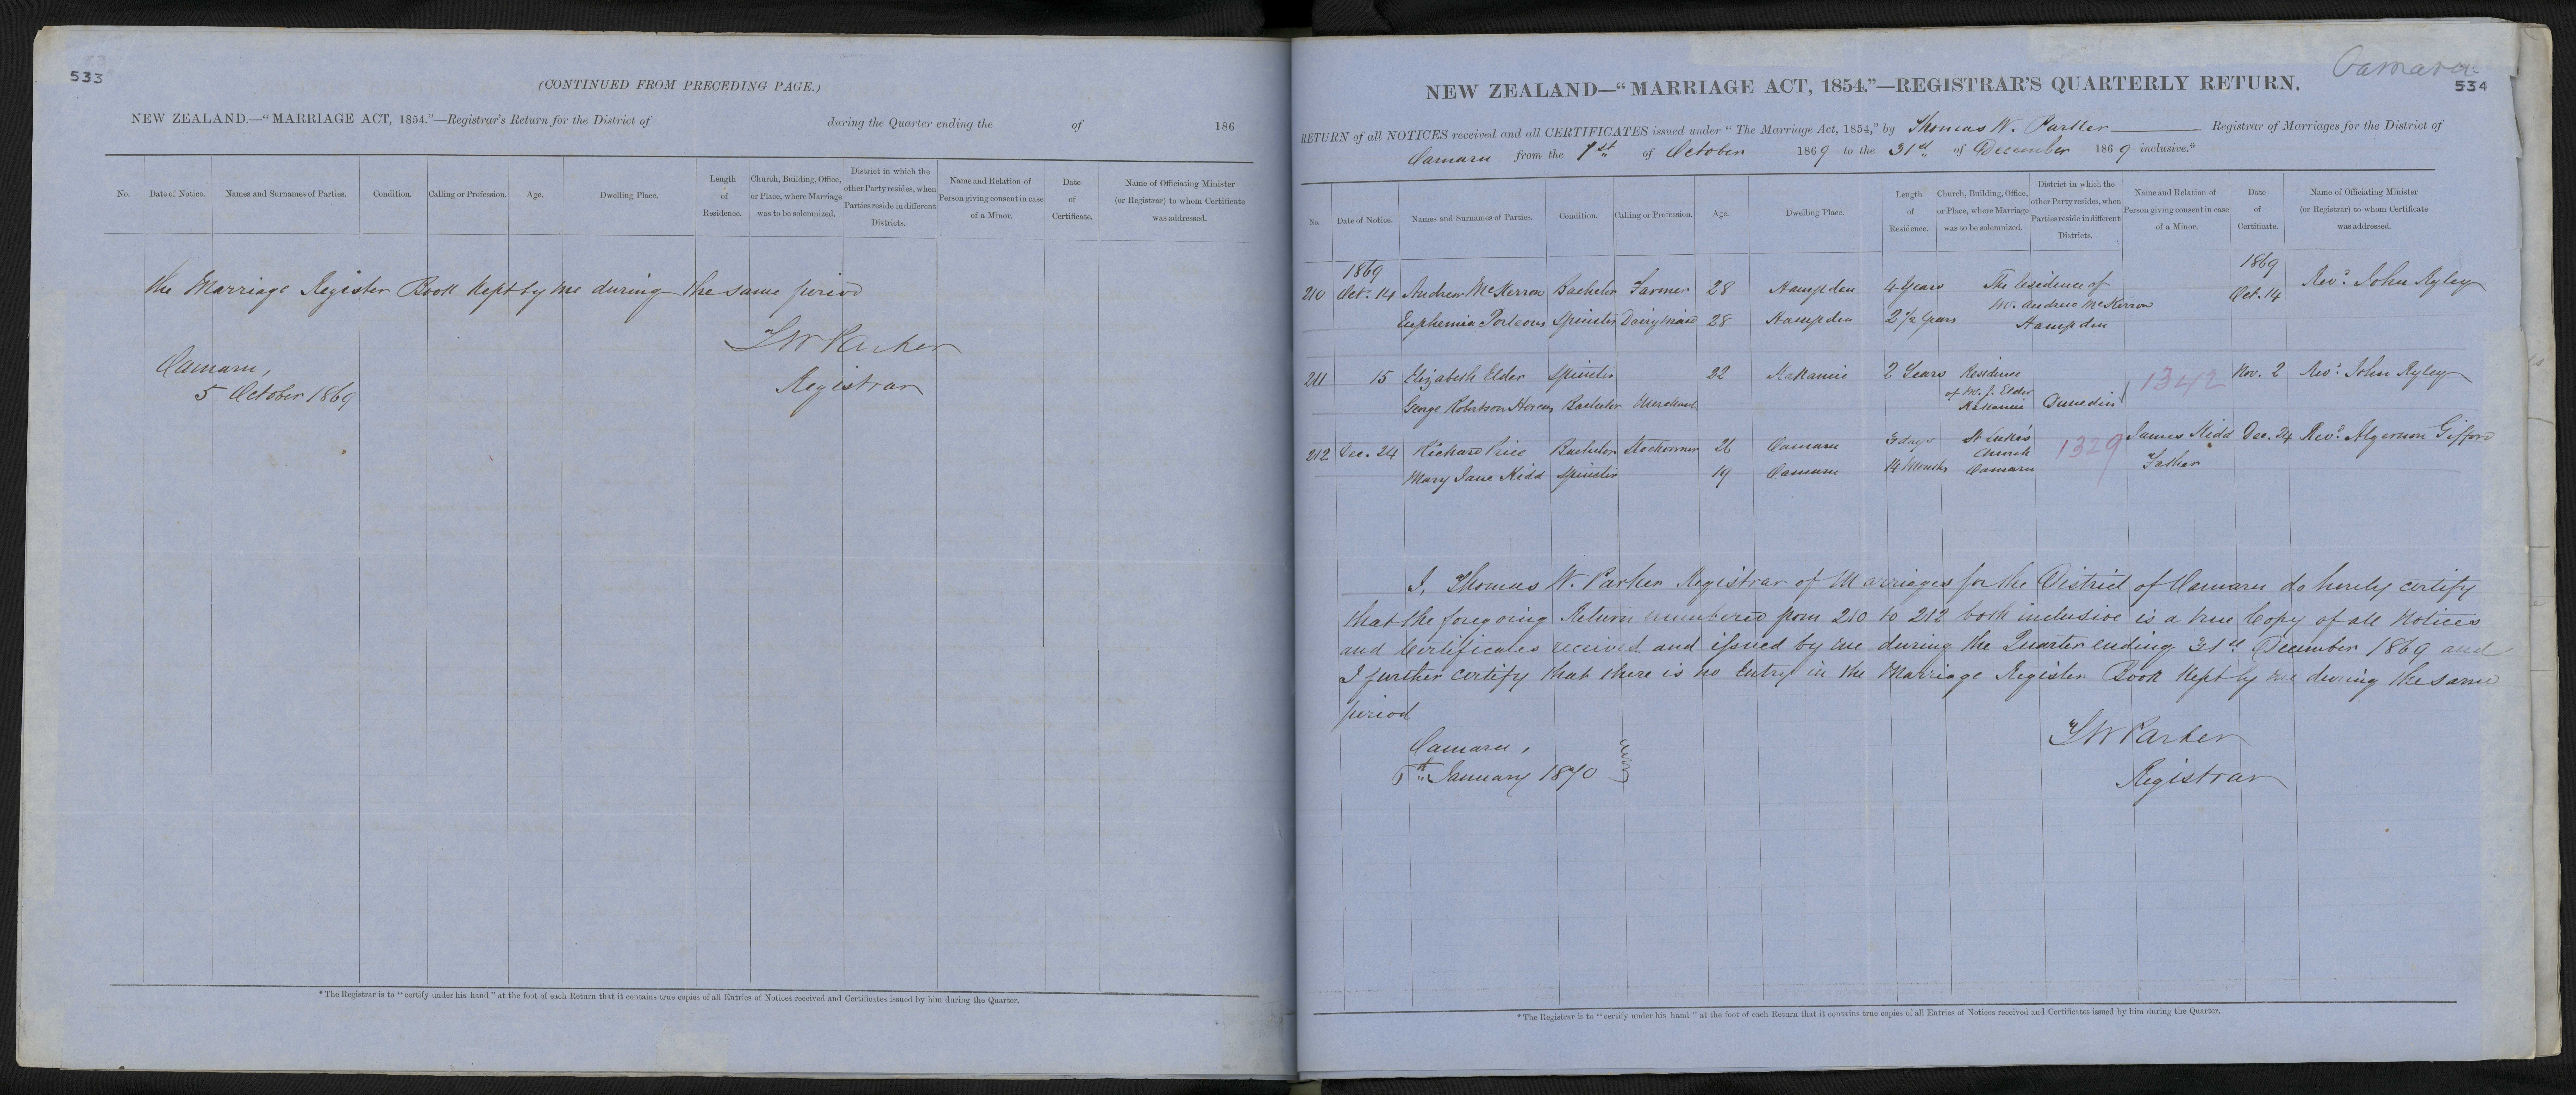 533
(CONTINUED FROM PRECEDING PAGE.)
NEW ZEALAND.—"MARRIAGE ACT, 1854."—Registrar's Return for the District of during the Quarter ending the of 186
No. Date of Notice. Names and Surnames of Parties. Condition. Calling or Profession. Age. Dwelling Place. Length of Residence. Church, Building, Office, or Place, where Marriage was to be solemnized. District in which the other Party resides, when Parties reside in different Districts. Name and Relation of Person giving consent in case of a Minor. Date of Certificate. Name of Officiating Minister (or Registrar) to whom Certificate was addressed.
the Marriage Register Book kept by me during the same period
T W Parker
Registrar
Oamaru,
5 October 1869
* The Registrar is to "certify under his hand" at the foot of each Return that it contains true copies of all Entries of Notices received and Certificates issued by him during the Quarter.
Oamaru
534
NEW ZEALAND—"MARRIAGE ACT, 1854."—REGISTRAR'S QUARTERLY RETURN.
RETURN of all NOTICES received and all CERTIFICATES issued under "The Marriage Act, 1854," by Thomas W. Parker Registrar of Marriages for the District of
Oamaru from the 1st of October 1869 to the 31st of December 1869 inclusive.*
No. Date of Notice. Names and Surnames of Parties. Condition. Calling or Profession. Age. Dwelling Place. Length of Residence. Church, Building, Office, or Place, where Marriage was to be solemnized. District in which the other Party resides, when Parties reside in different Districts. Name and Relation of Person giving consent in case of a Minor. Date of Certificate. Name of Officiating Minister (or Registrar) to whom Certificate was addressed.
1869 1869
210 Oct. 14 Andrew McKerron Bachelor Farmer 28 Hampden 4 Years The residence of Mr. Andrew McKerron Hampden Oct. 14 Revd. John Ryley
Euphemia Porteous Spinster Dairymaid 28 Hampden 2 1/2 Years
211 15 Elizabeth Elder Spinster 22 Kakanui 2 Years Residence of Mr. J. Elder Kakanui Dunedin 1342 Nov. 2 Revd. John Ryley
George Robertson Bachelor Merchant
212 Dec. 24 Richard Price Bachelor Stockowner 26 Oamaru 3 days St Luke's Church Oamaru 1329 James Kidd Father Dec. 24 Revd. Algernon Gifford
Mary Jane Kidd Spinster 19 Oamaru 14 Months
I, Thomas W. Parker Registrar of Marriages for the District of Oamaru do hereby certify
that the foregoing Return numbered from 210 to 212 both inclusive is a true Copy of all Notices
and Certificates received and issued by me during the Quarter ending 31st December 1869 and
I further certify that there is no Entry in the Marriage Register Book kept by me during the same
period
Oamaru,
January 1870
T W Parker
Registrar
* The Registrar is to "certify under his hand" at the foot of each Return that it contains true copies of all Entries of Notices received and Certificates issued by him during the Quarter.